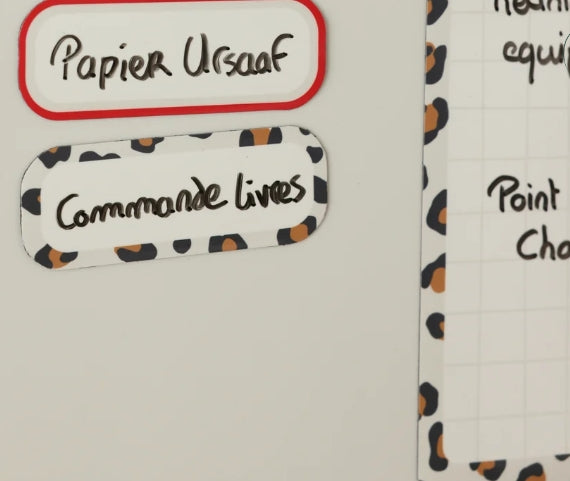 Papier Urssaf
Commande livres
equi
Point
Cho